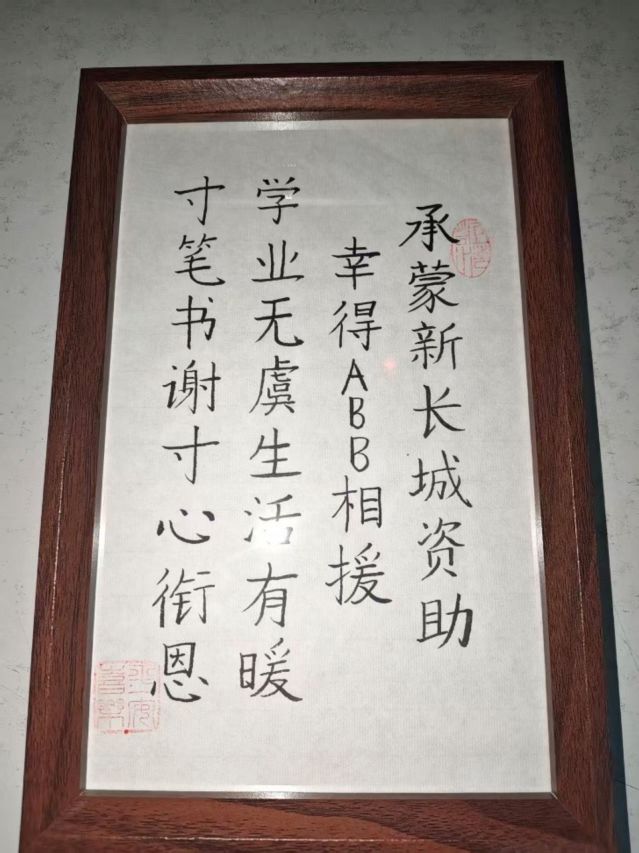 承蒙新长城资助
幸得ABB相援
学业无虞生活有暖
寸笔书谢寸心衔恩